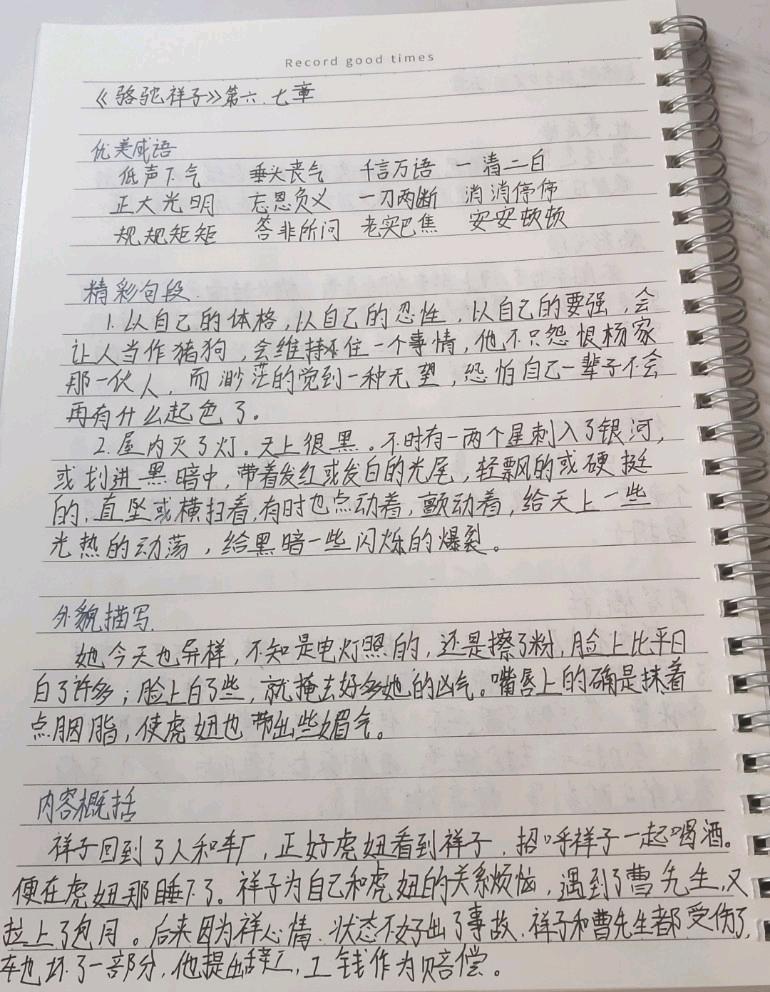 Record good times
《骆驼祥子》第六.七章
优美成语
低声下气 垂头丧气 千言万语 一清二白
正大光明 忘恩负义 一刀两断 消消停停
规规矩矩 答非所问 老实巴焦 安安顿顿
精彩句段.
1.以自己的体格,以自己的忍性,以自己的要强,会
让人当作猪狗,会维持不住一个事情,他不只怨恨杨家
那一伙人,而渺茫的觉到一种无望,恐怕自己一辈子不会
再有什么起色了。
2.屋内灭了灯。天上很黑。不时有一两个星刺入了银河,
或划进黑暗中,带着发红或发白的光尾,轻飘的或硬挺
的,直坠或横扫着,有时也点动着,颤动着,给天上一些
光热的动荡,给黑暗一些闪烁的爆裂。
外貌描写.
她今天也异样,不知是电灯照的,还是擦了粉,脸上比平日
白了许多;脸上白了些,就掩去好多她的凶气。嘴唇上的确是抹着
点胭脂,使虎妞也带出些媚气。
内容概括
祥子回到了人和车厂,正好虎妞看到祥子,招呼祥子一起喝酒。
便在虎妞那睡下了。祥子为自己和虎妞的关系烦恼,遇到了曹先生,又
拉上了包月。后来因为祥心情、状态不好出了事故,祥子和曹先生都受伤了,
车也坏了一部分,他提出辞工,工钱作为赔偿。